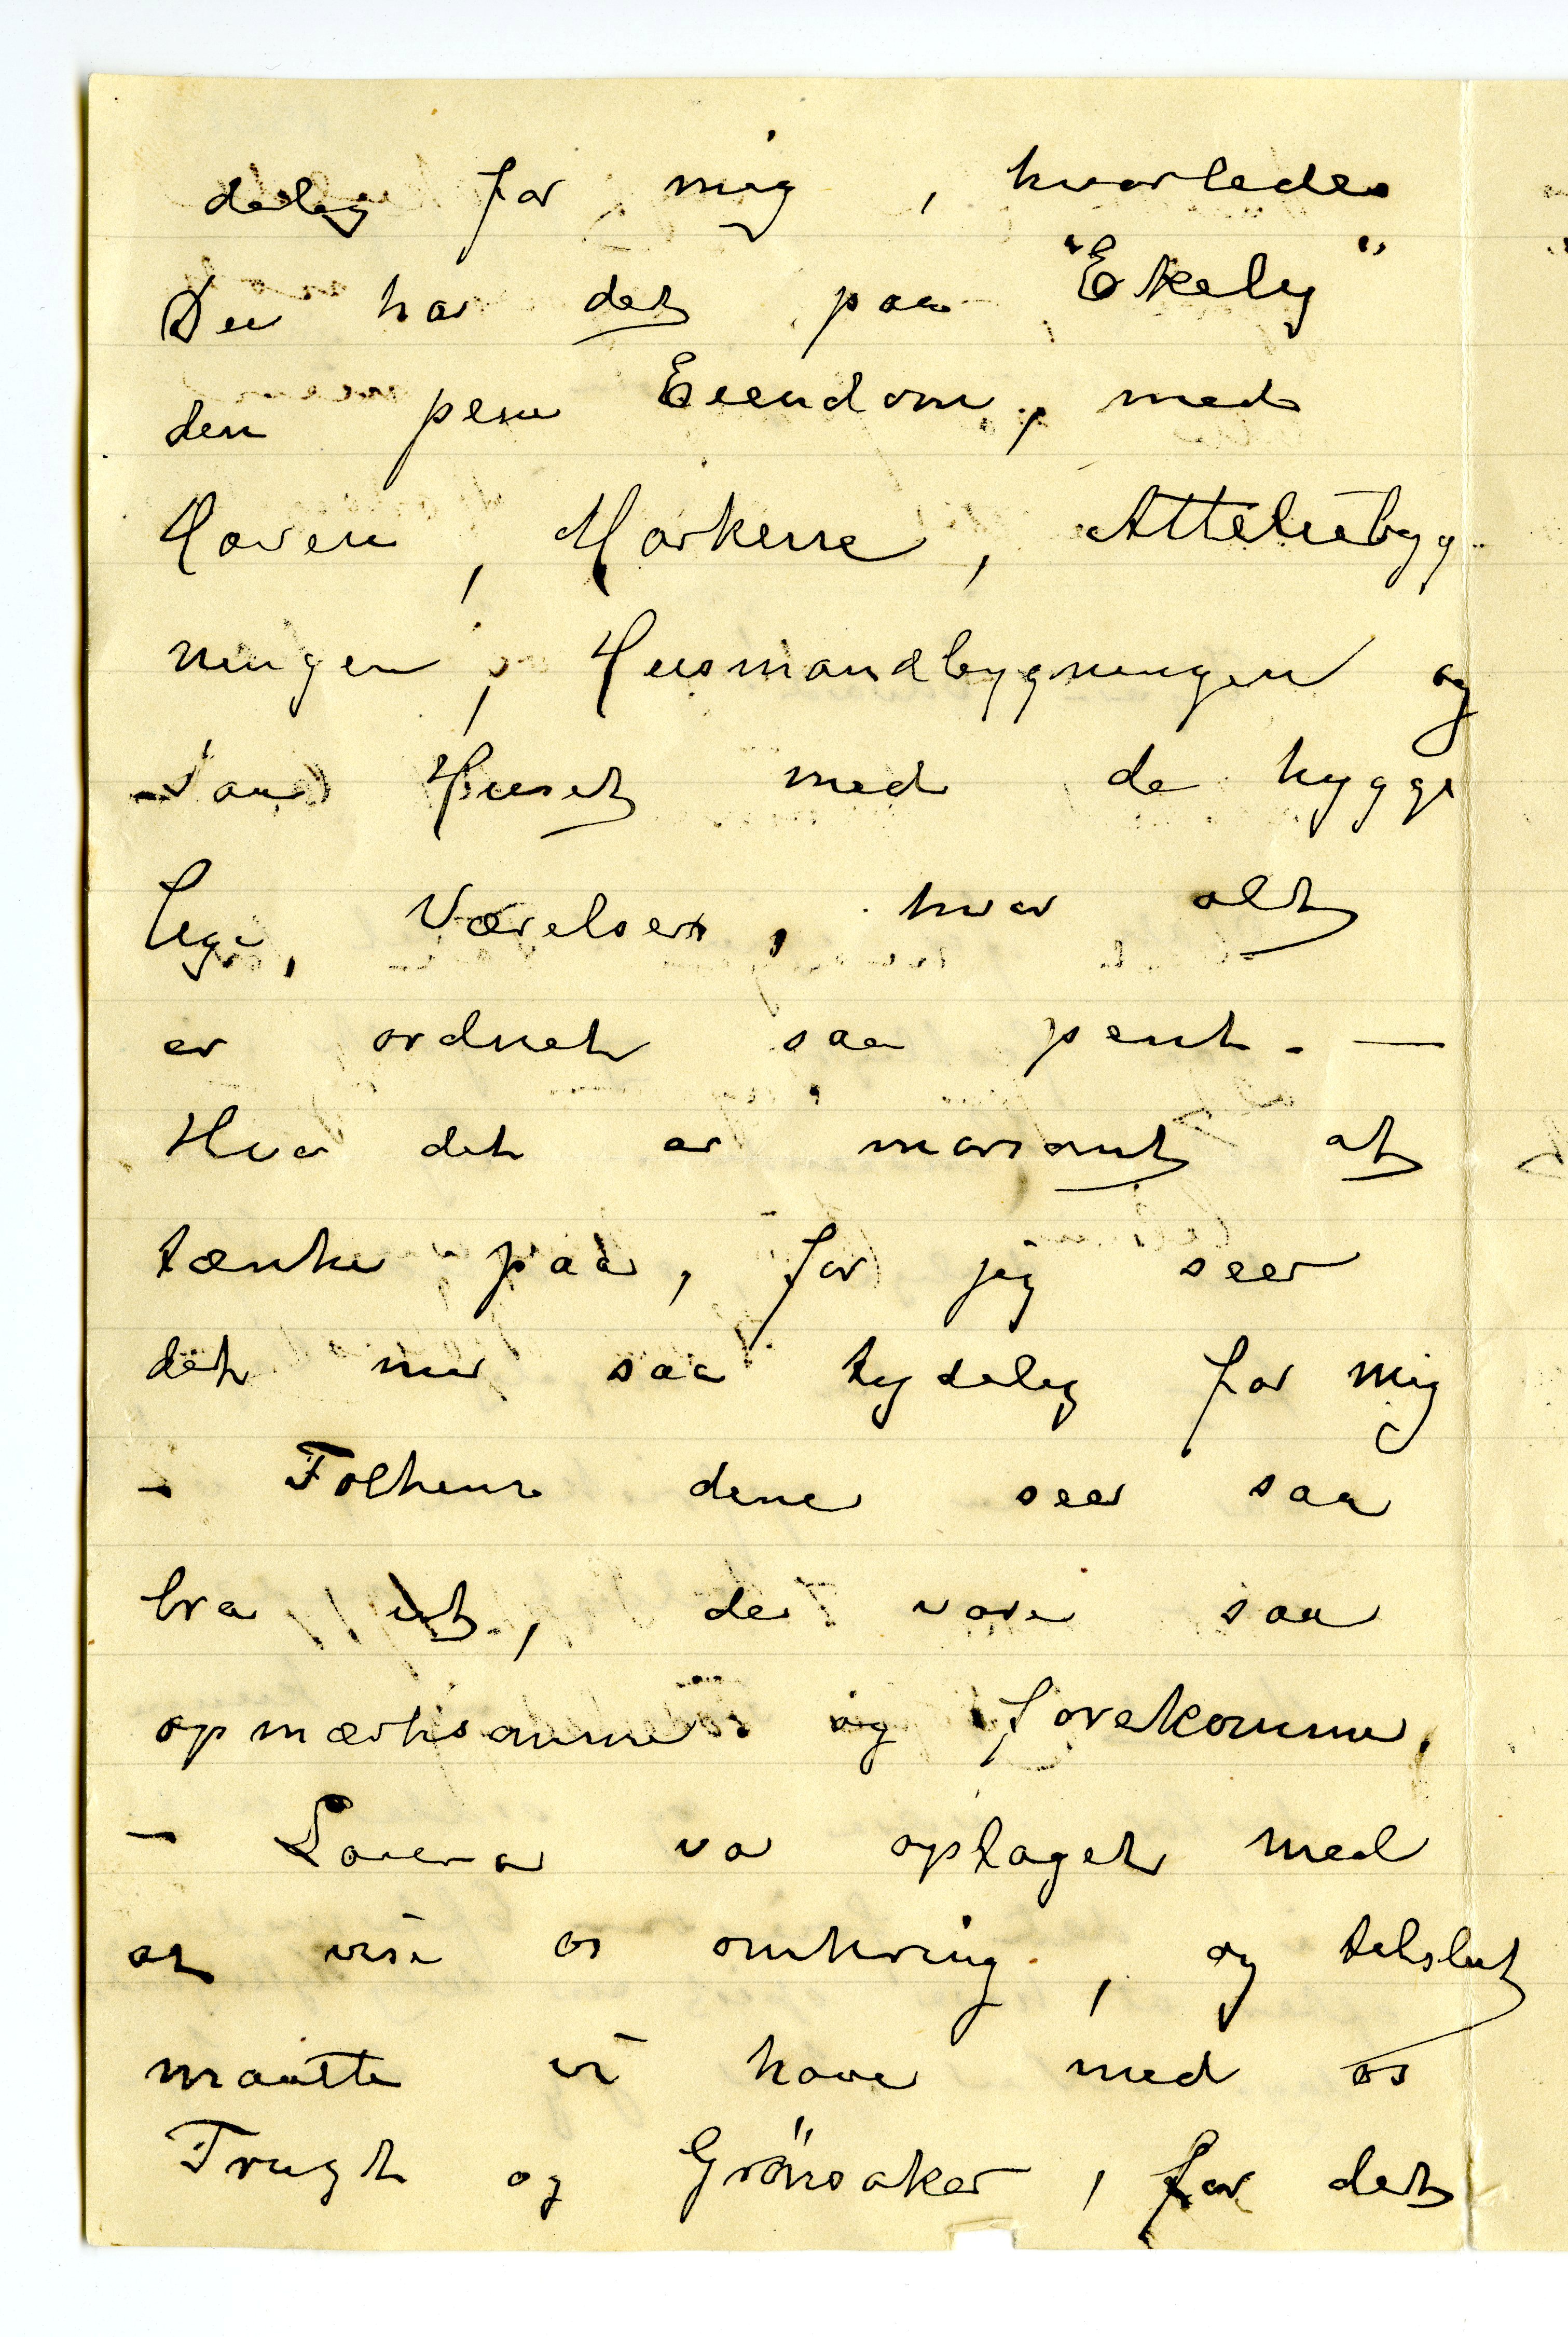 delig for mig, hvorledes
Du har det paa "Ekely"
den pene Eiendom, med
Haven, Markerne, Atteliebyg-
ningen, Husmandbygningen og
saa Huset med de hygge
lige, Værelser, hvor alt
er ordnet saa pent. —
Hvor det er morsomt at
tænke paa, for jeg seer
det nu saa tydelig for mig
– Folkene dine seer saa
bra ut, de vare saa
opmærksomme og forekomme,
– var optaget med
at vise os omkring, og tilslut
maatte vi have med os
Frugt og Grönsaker, for det